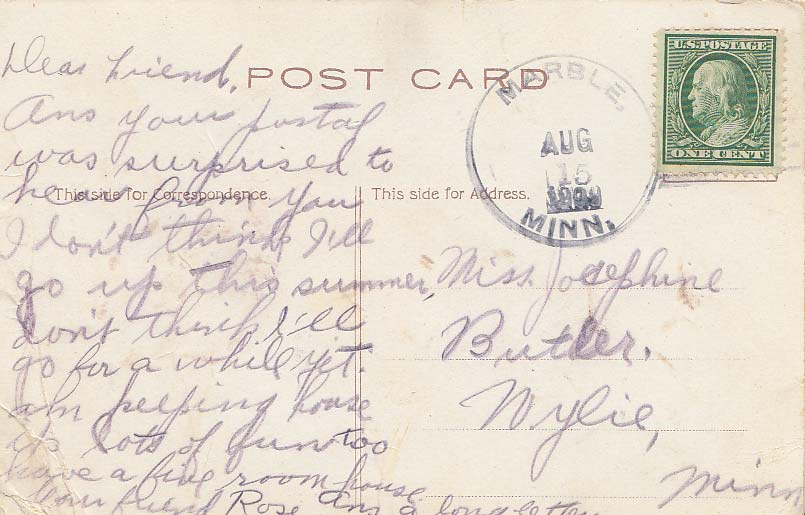 Dear Friend,
POST CARD
Ans your postal
was surprised to
hear from you
This side for Correspondence.
I don't think I'll
go up this summer,
don't think I'll
go for a while yet.
am keeping house
its lots of fun too
have a five room house.
Your friend Rose Ans a long letter
This side for Address.
MARBLE,
AUG
15
MINN.
U.S. POSTAGE
ONE CENT
Miss. Josephine
Butler.
Wylie,
Minn